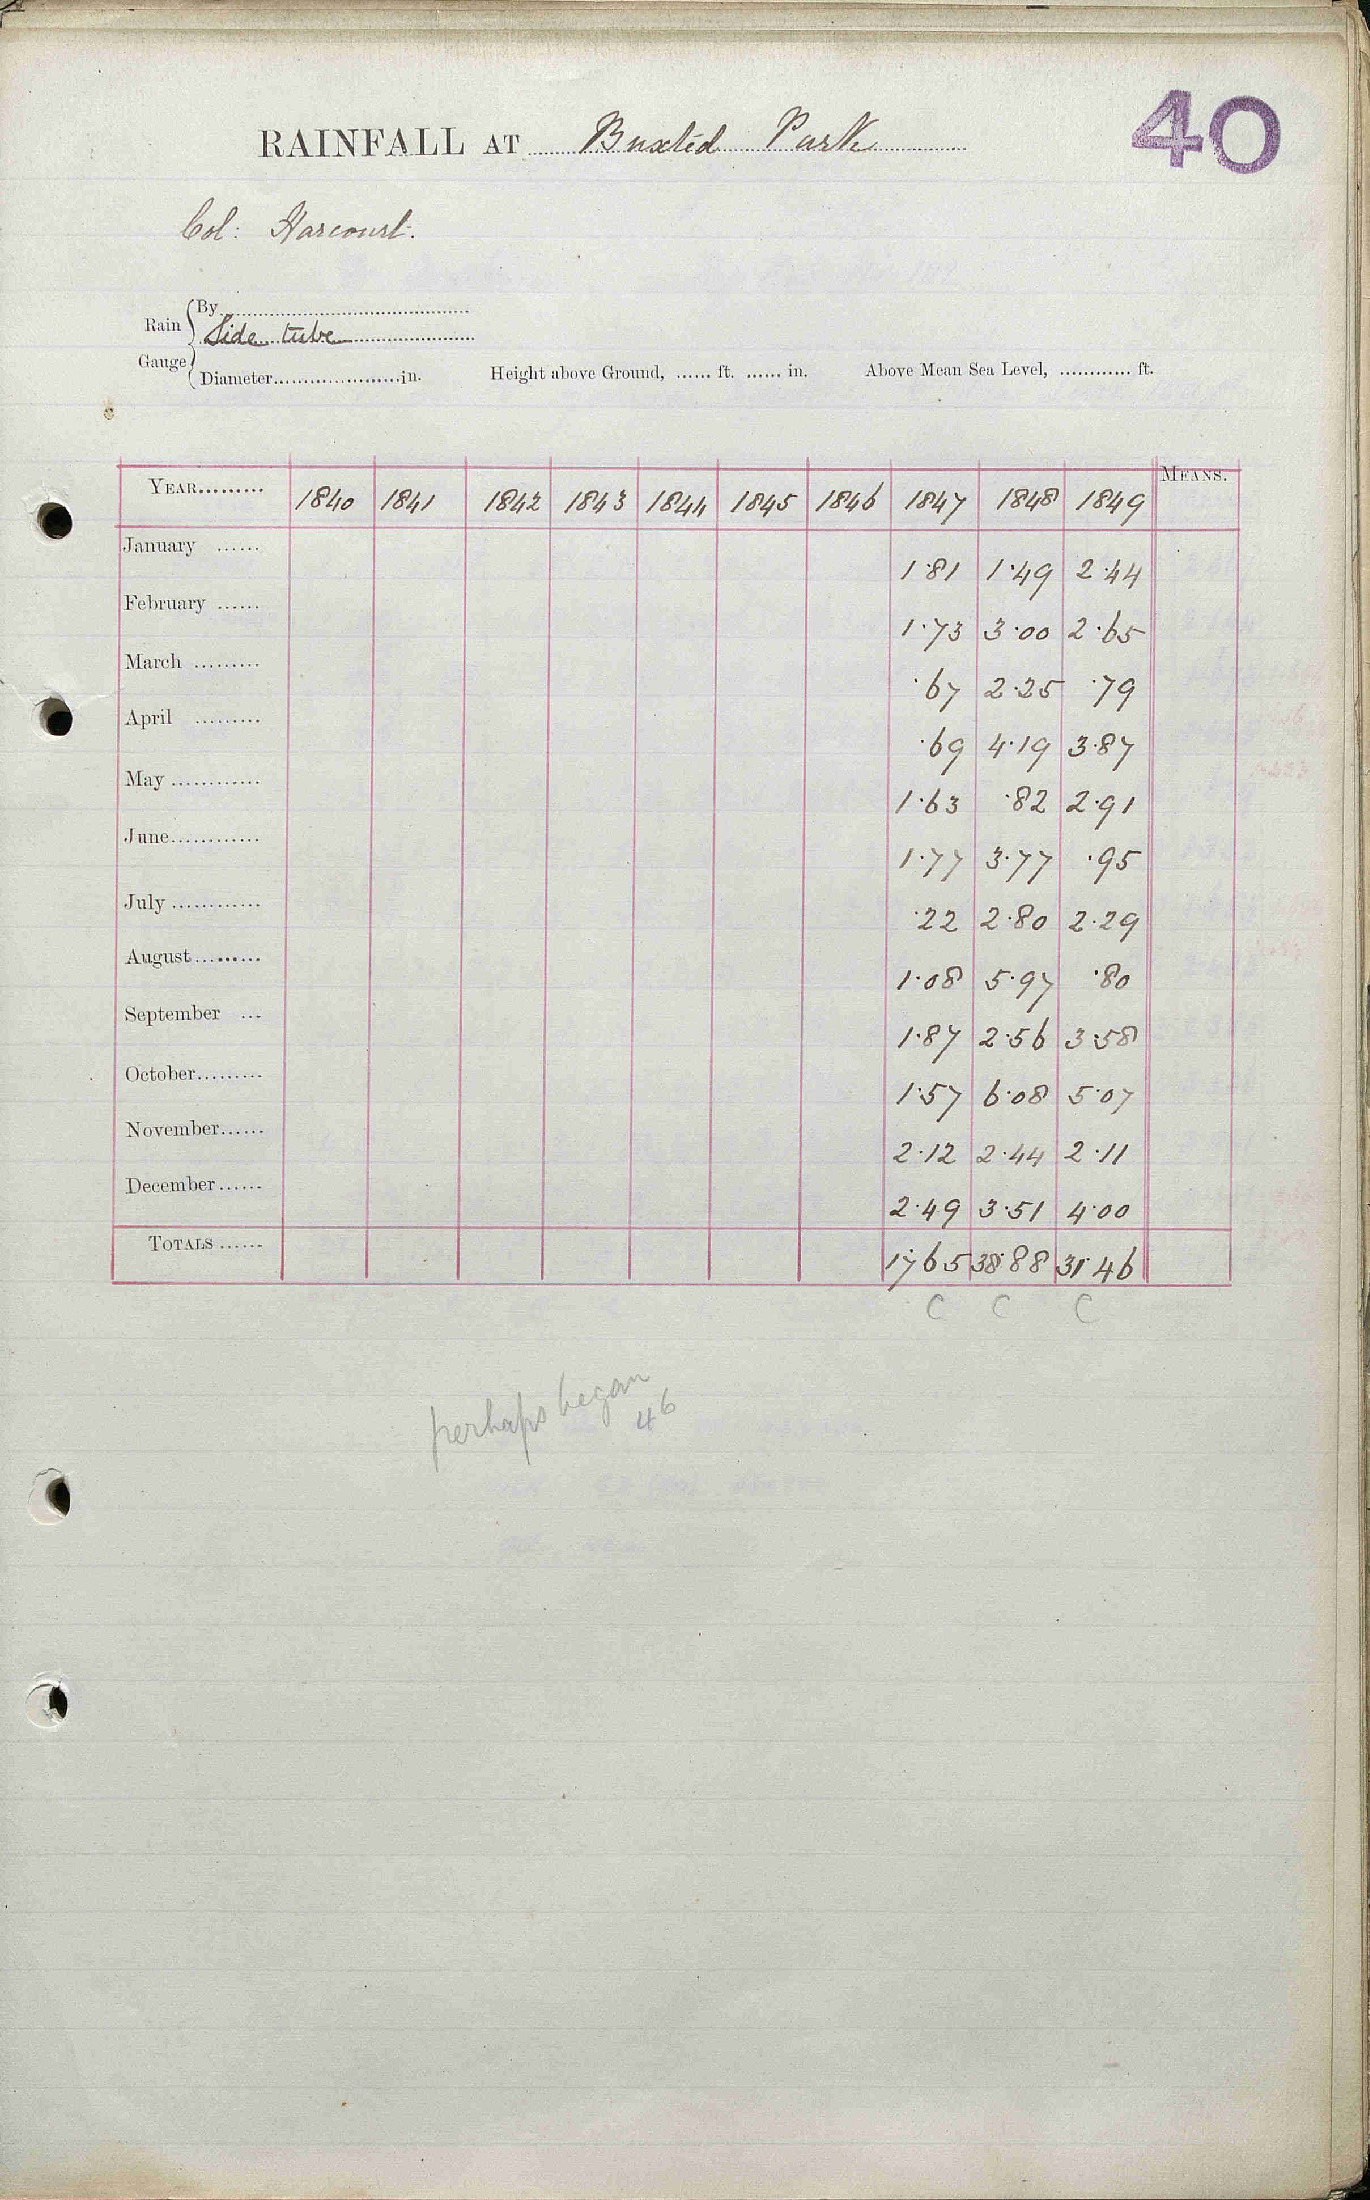 40
RAINFALL AT Buxted Park
Col: Harcourt.
Rain Gauge
By
Side tube
Diameter.....................in. Height above Ground, ...... ft. ...... in. Above Mean Sea Level, ............ ft.
YEAR......... 1840 1841 1842 1843 1844 1845 1846 1847 1848 1849 MEANS.
January ...... 1.81 1.49 2.44
February ...... 1.73 3.00 2.65
March ......... .67 2.25 .79
April ......... .69 4.19 3.87
May ............ 1.63 .82 2.91
June............ 1.77 3.77 .95
July ............ .22 2.80 2.29
August......... 1.08 5.97 .80
September ... 1.87 2.56 3.58
October......... 1.57 6.08 5.07
November...... 2.12 2.44 2.11
December...... 2.49 3.51 4.00
TOTALS ...... 17.65 38.88 31.46
C C C
perhaps began
46